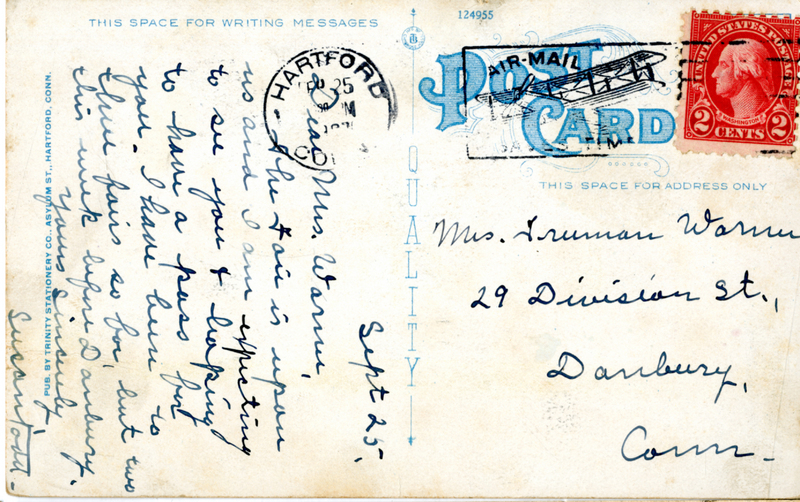 THIS SPACE FOR WRITING MESSAGES
124955
POST CARD
QUALITY
THIS SPACE FOR ADDRESS ONLY
PUB. BY TRINITY STATIONERY CO., ASYLUM ST., HARTFORD, CONN.
HARTFORD
25
AIR-MAIL
UNITED STATES POSTAGE
WASHINGTON
2 CENTS 2
Sept 25,
Dear Mrs. Warner,
The Fair is upon
us and I am expecting
to see you & hoping
to have a pass for
you. I have been to
three fairs so far, but two
this week before Danbury.
Yours Sincerely
Susan Todd.
Mrs. Truman Warner
29 Division St.,
Danbury,
Conn.